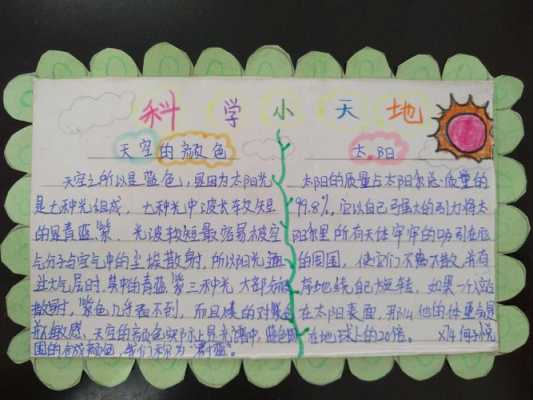 科学小天地
天空的颜色
天空之所以是蓝色,是因为太阳光
是七种光组成,七种光中波长较短
的是青蓝紫,光波较短最容易被空
气分子与空气中的尘埃散射,所以阳光通
过大气层时,其中的青蓝紫三种光大部分被
散射,紫色几乎看不到,而且人的对紫色
敏感,天空的颜色实际上是光谱中蓝色
围的合成颜色,我们称为"蔚蓝"。
太阳
太阳的质量占太阳系总质量的
99.8%,它以自己强大的引力将太
阳系里所有天体牢牢的吸引在它
的周围,使它们不离不散,井有
序地绕自己旋转,如果一个人站
在太阳表面,那么他的体重会是
在地球上的20倍。